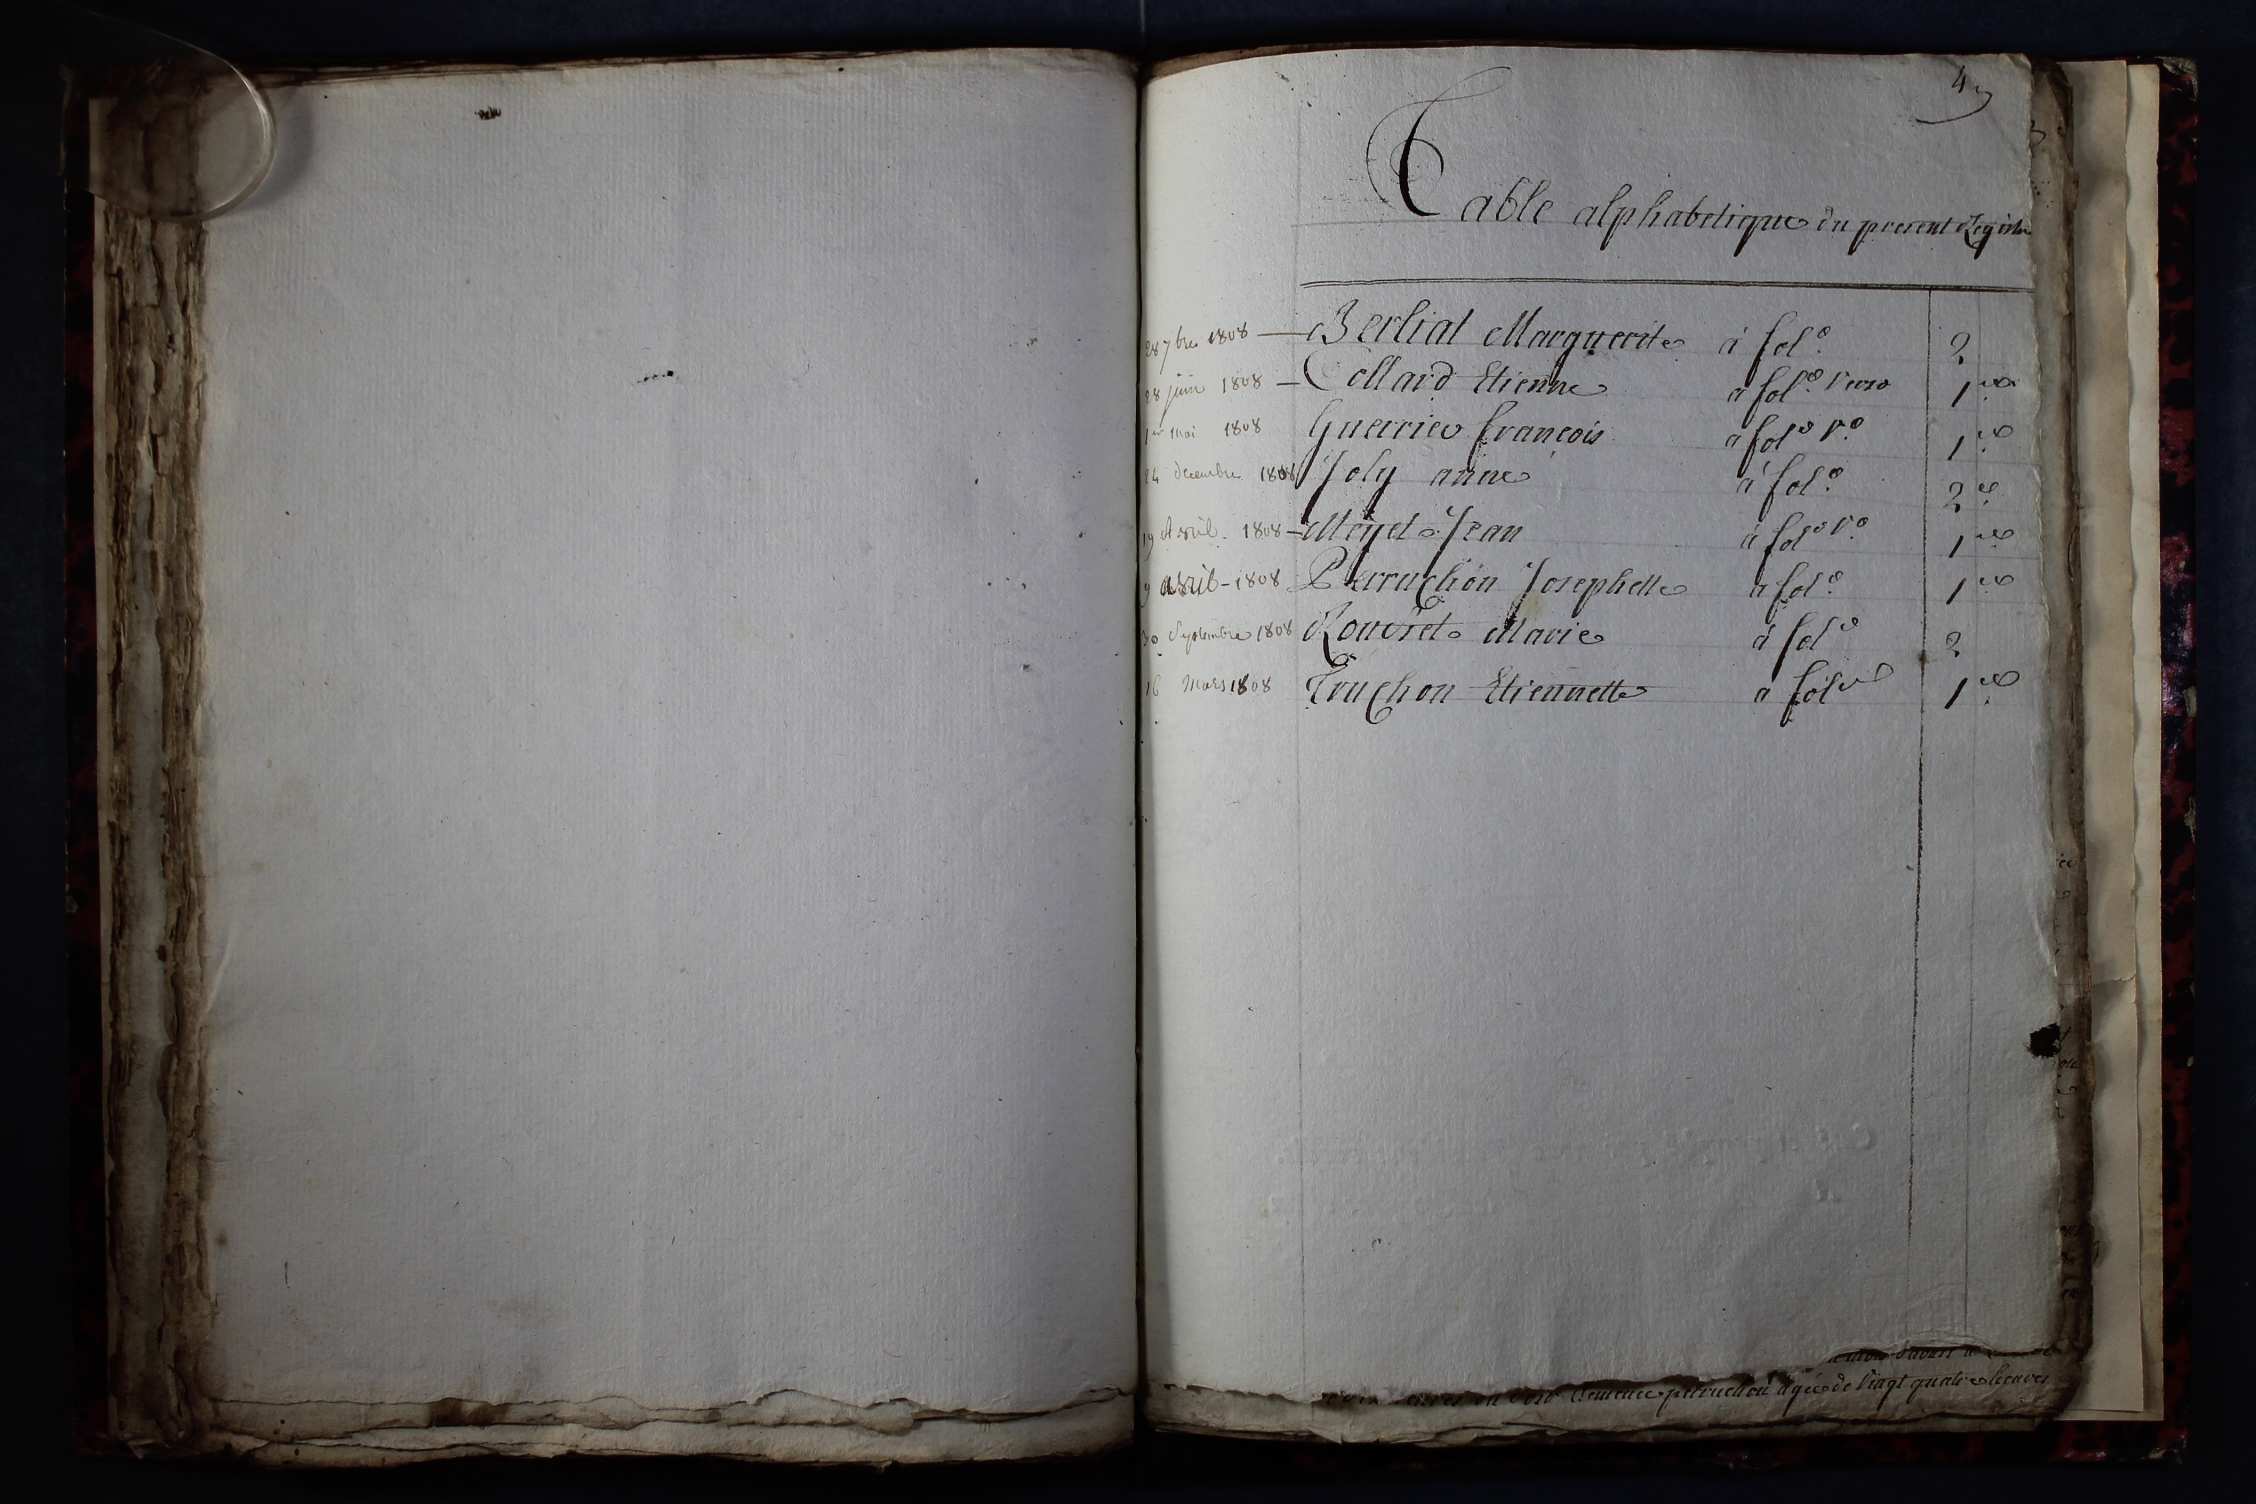 4
Table alphabetique du present Registre
28 7bre 1808 — Berliat Marguerite à fol.º 2
28 juin 1808 — Collard Etienne a fol.º verso 1er
1er mai 1808 Guerrier françois a folº vº 1er
24 decembre 1808 Joly anne à fol.º 2e
19 Avril. 1808 — Meyet Jean à folº vº 1er
9 avril - 1808 Perruchon Josephette a fol.º 1er
30 Septembre 1808 Rouvret Marie à folº 2
16 Mars 1808 Truchon Etiennette a fol 1er
perruchon agée de vingt quatre heures